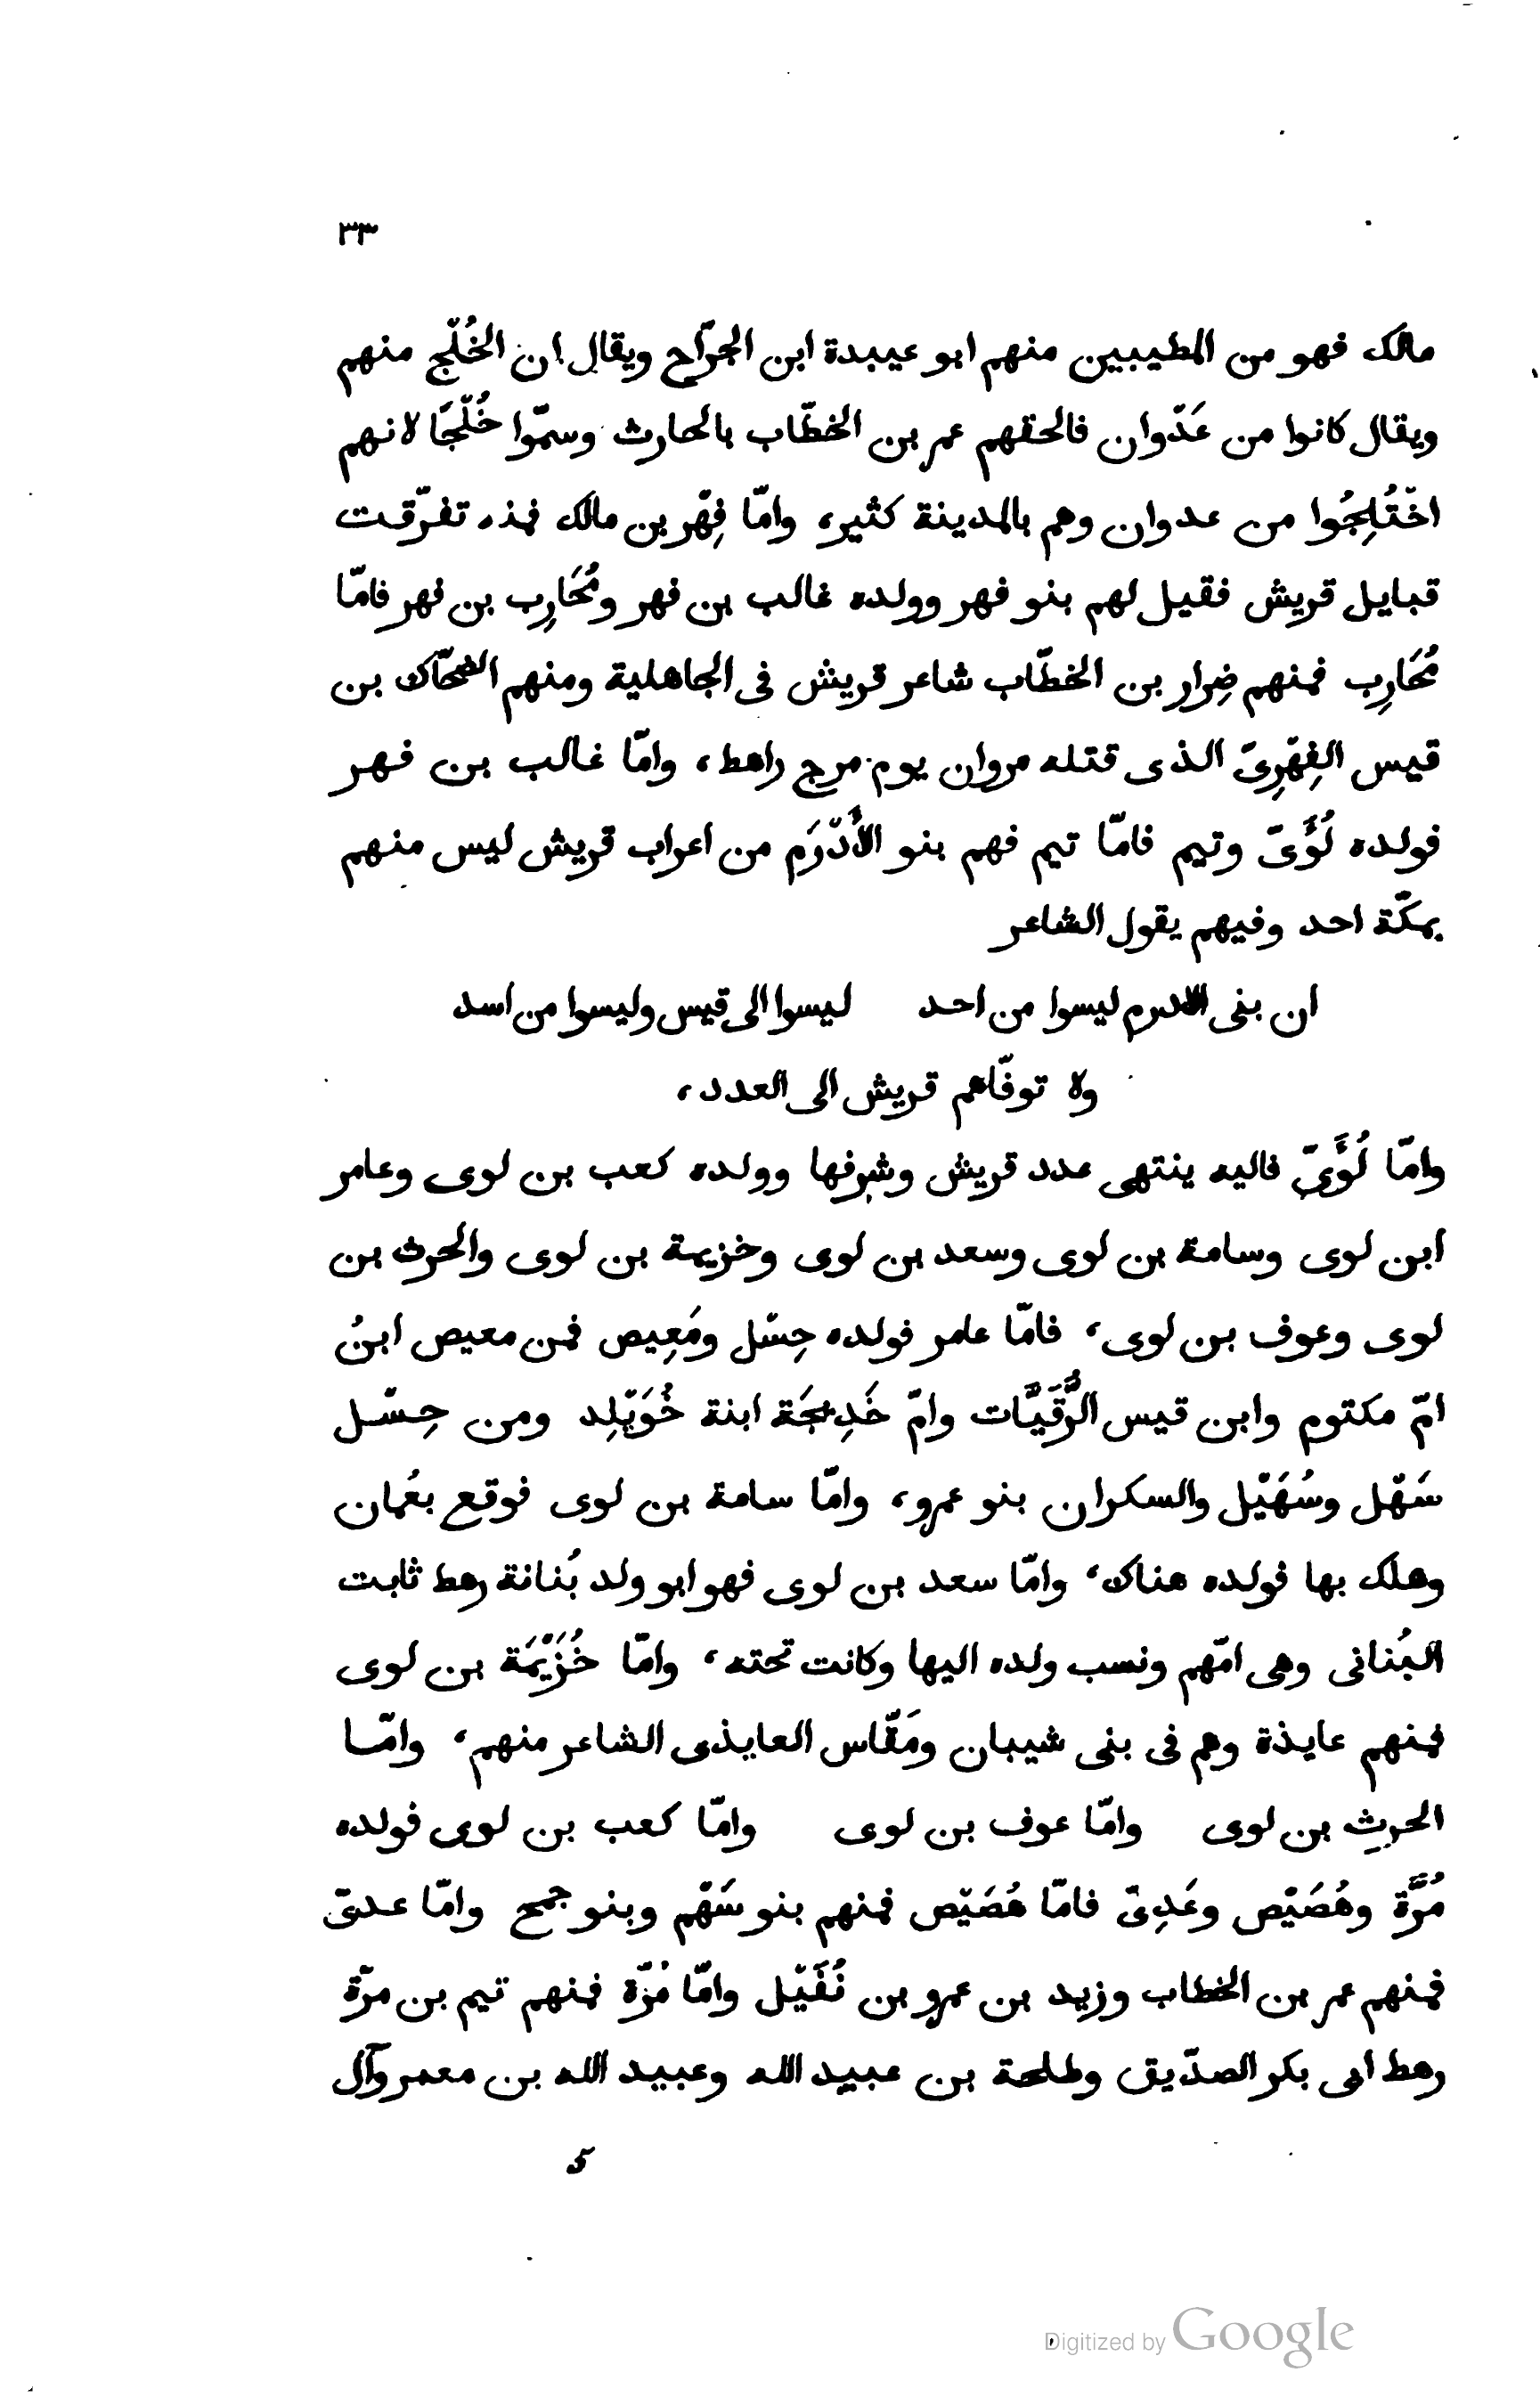 ٣٣
مالك فهو من المطيبين منهم ابو عبيدة ابن الجرّاح ويقال ان الخُلْج منهم
ويقال كانوا من عَدْوان فالحقهم عمر بن الخطّاب بالحارث وسمّوا خُلْجًا لانهم
اخْتُلِجُوا من عدوان وهم بالمدينة كثير، وامّا فِهْر بن مالك فمنه تفرّقت
قبايل قريش فقيل لهم بنو فهر وولده غالب بن فهر ومُحَارِب بن فهر فامّا
مُحَارِب فمنهم ضِرار بن الخطّاب شاعر قريش فى الجاهلية ومنهم الضحّاك بن
قيس الفِهْرِىّ الذى قتله مروان يوم مرج راهط، وامّا غالب بن فهر
فولده لُؤَىّ وتيم فامّا تيم فهم بنو الأَدْرَم من اعراب قريش ليس منهم
بمكّة احد وفيهم يقول الشاعر
ان بنى الادرم ليسوا من احد ليسوا الى قيس وليسوا من اسد
ولا توفّاهم قريش الى العدد،
وامّا لُؤَىّ فاليه ينتهى عدد قريش وشرفها وولده كعب بن لوى وعامر
ابن لوى وسامة بن لوى وسعد بن لوى وخزيمة بن لوى والحرث بن
لوى وعوف بن لوى، فامّا عامر فولده حِسْل ومَعِيص فمن معيص ابنُ
امّ مكتوم وابن قيس الرُّقَيَّات وامّ خَدِيجَة ابنة خُوَيْلِد ومن حِسْل
سَهْل وسُهَيْل والسكران بنو عمرو، وامّا سامة بن لوى فوقع بعُمان
وهلك بها فولده هناك، وامّا سعد بن لوى فهو ابو ولد بُنانة رهط ثابت
البُنانى وهى امّهم ونسب ولده اليها وكانت تحته، وامّا خُزَيْمَة بن لوى
فمنهم عايذة وهم فى بنى شيبان ومَقّاس العايذى الشاعر منهم، وامّا
الحرث بن لوى وامّا عوف بن لوى وامّا كعب بن لوى فولده
مُرَّة وهُصَيْص وعَدِىّ فامّا هُصَيْص فمنهم بنو سَهْم وبنو جمح وامّا عدىّ
فمنهم عمر بن الخطاب وزيد بن عمرو بن نُفَيْل وامّا مُرّة فمنهم تيم بن مرّة
رهط ابى بكر الصدّيق وطلحة بن عبيد الله وعبيد الله بن معمر وآل
5
Digitized by Google